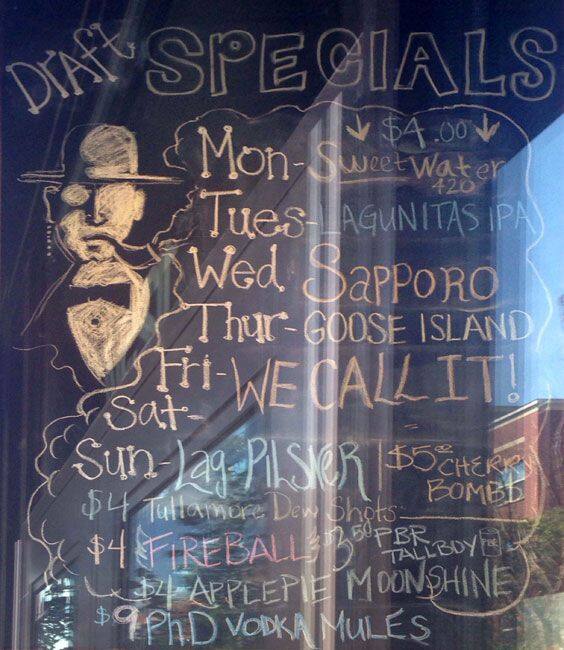 Draft SPECIALS
$4.00
Mon- Sweetwater
420
Tues- LAGUNITAS IPA
Wed. SAPPORO
Thur- GOOSE ISLAND
Fri- WE CALL IT!
Sat-
Sun- Lag. PILSNER
$5.00 CHERRY
BOMBS
$4 Tullamore Dew Shots
$4 FIREBALL
$3.50 PBR
TALLBOY
$4 APPLEPIE MOONSHINE
$9 PhD VODKA MULES